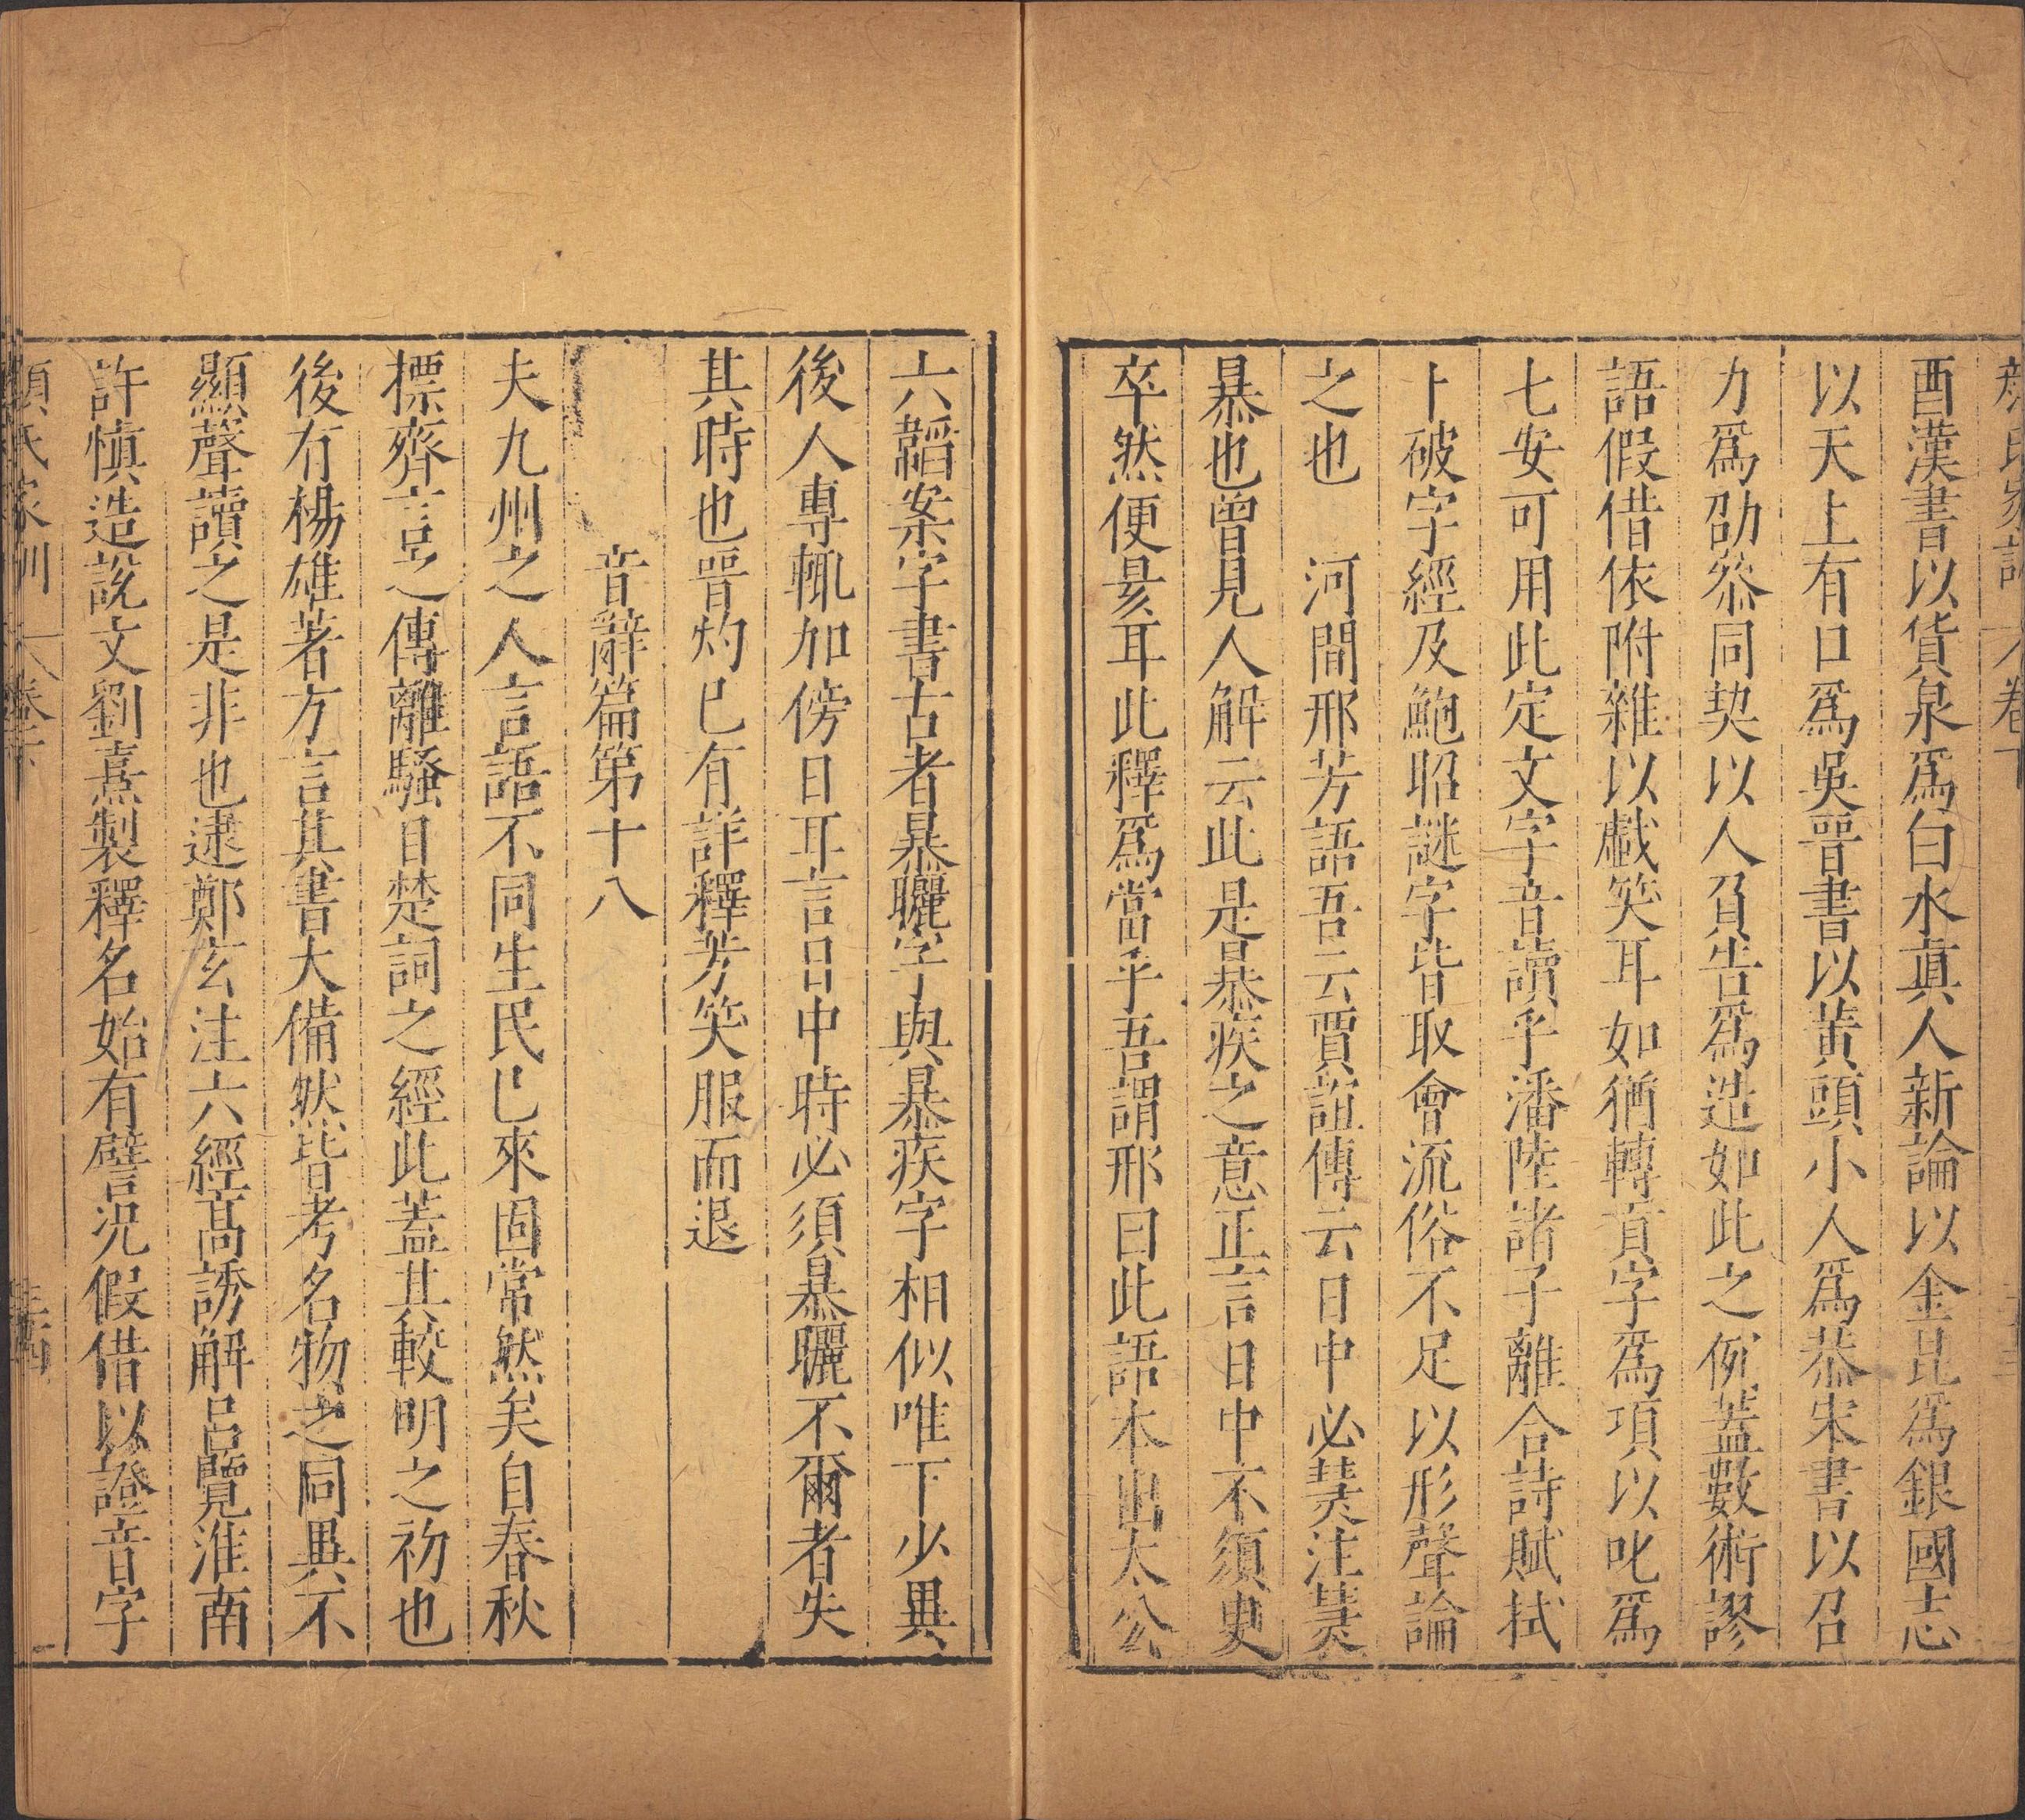 顏氏家訓 卷下
酉漢書以貨泉爲白水眞人新論以金昆爲銀國志
以天上有口爲吳晉書以黃頭小人爲恭宋書以召
力爲劭叅同契以人負告爲造如此之例蓋數術謬
語假借依附雜以戲笑耳如猶轉貢字爲項以叱爲
七安可用此定文字音讀乎潘陸諸子離合詩賦拭
卜破字經及鮑昭謎字皆取會流俗不足以形聲論
之也 河間邢芳語吾云賈誼傳云日中必䒿注䒿
暴也曾見人解云此是暴疾之意正言日中不須臾
卒然便昃耳此釋爲當乎吾謂邢曰此語本出太公
六韜案字書古者暴曬字與暴疾字相似唯下少異
後人專輒加傍日耳言日中時必須暴曬不爾者失
其時也晉灼已有詳釋芳笑服而退
音辭篇第十八
夫九州之人言語不同生民已來固常然矣自春秋
標齊言之傳離騷目楚詞之經此蓋其較明之初也
後有楊雄著方言其書大備然皆考名物之同異不
顯聲讀之是非也逮鄭玄注六經高誘解呂覽淮南
許慎造說文劉熹製釋名始有譬況假借以證音字
顏氏家訓 卷下 三四